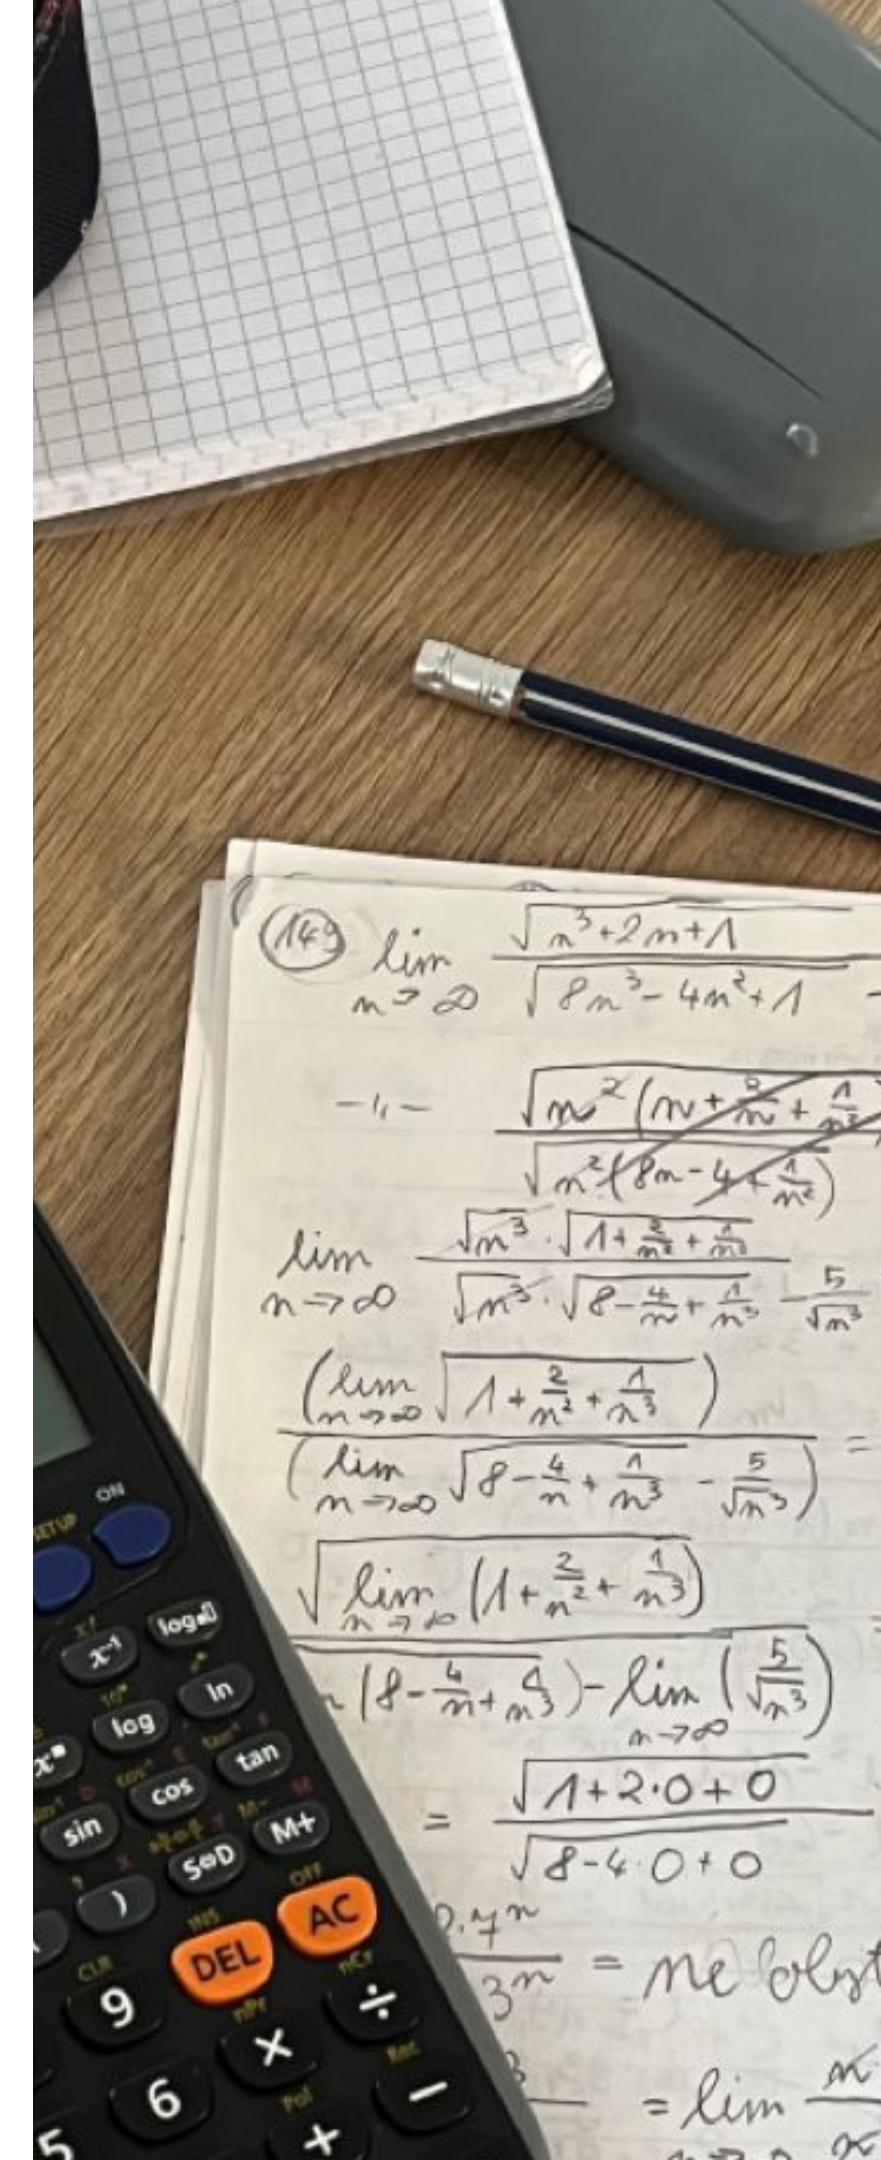 149 lim n→∞ √(n³+2n+1) / √(8n³-4n²+1) -
-11- √(n²(n+2/n+1/n²)) / √(n²(8n-4+1/n²))
lim n→∞ √n³·√(1+2/n²+1/n³) / √n³·√(8-4/n+1/n³) - 5/√n³
(lim n→∞ √(1+2/n²+1/n³)) / (lim n→∞ √(8-4/n+1/n³) - 5/√n³) =
√(lim n→∞ (1+2/n²+1/n³)) / (8-4/n+1/n³) - lim n→∞ (5/√n³) =
= √(1+2·0+0) / √(8-4·0+0)
7ⁿ / 3ⁿ =
= lim
ON
SETUP
x! x⁻¹ log
10ˣ log ln
cos⁻¹ cos tan⁻¹ tan
sin S⇔D M- M M+
) INS DEL OFF AC
CLR 9 nPr × nCr ÷
5 6 Pol + Rec −